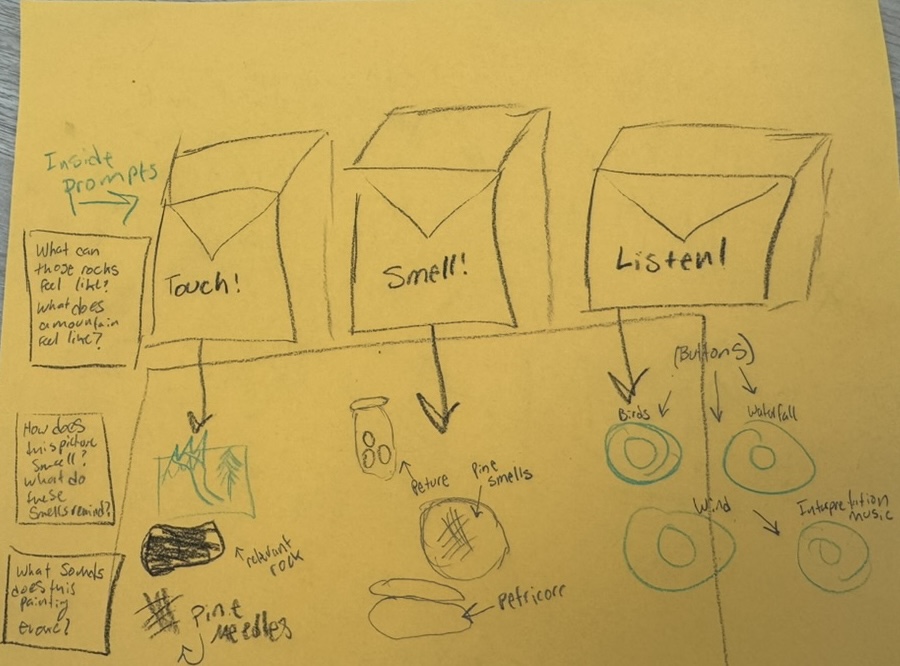 Inside
prompts
What can
those rocks
feel like?
What does
a mountain
feel like?
Touch!
Smell!
Listen!
How does
this picture
smell?
What do
these
smells remind?
What sounds
does this
painting
evoke?
relevant
rock
Pine
needles
Peture
Pine
smells
Petricorr
(Buttons)
Birds
Waterfall
Wind
Interpretation
music